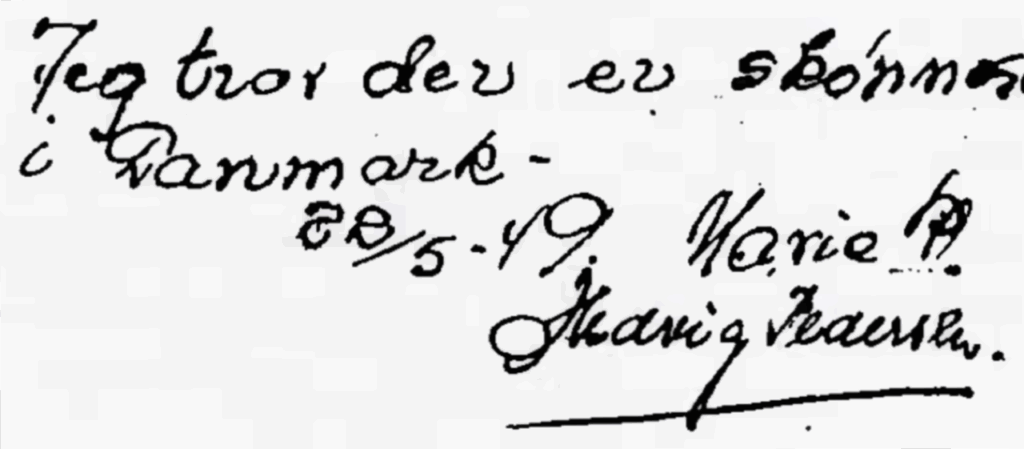 Jeg tror der er skønnest
i Danmark -
28/5-49. Marie P.
Hedvig Pedersen.